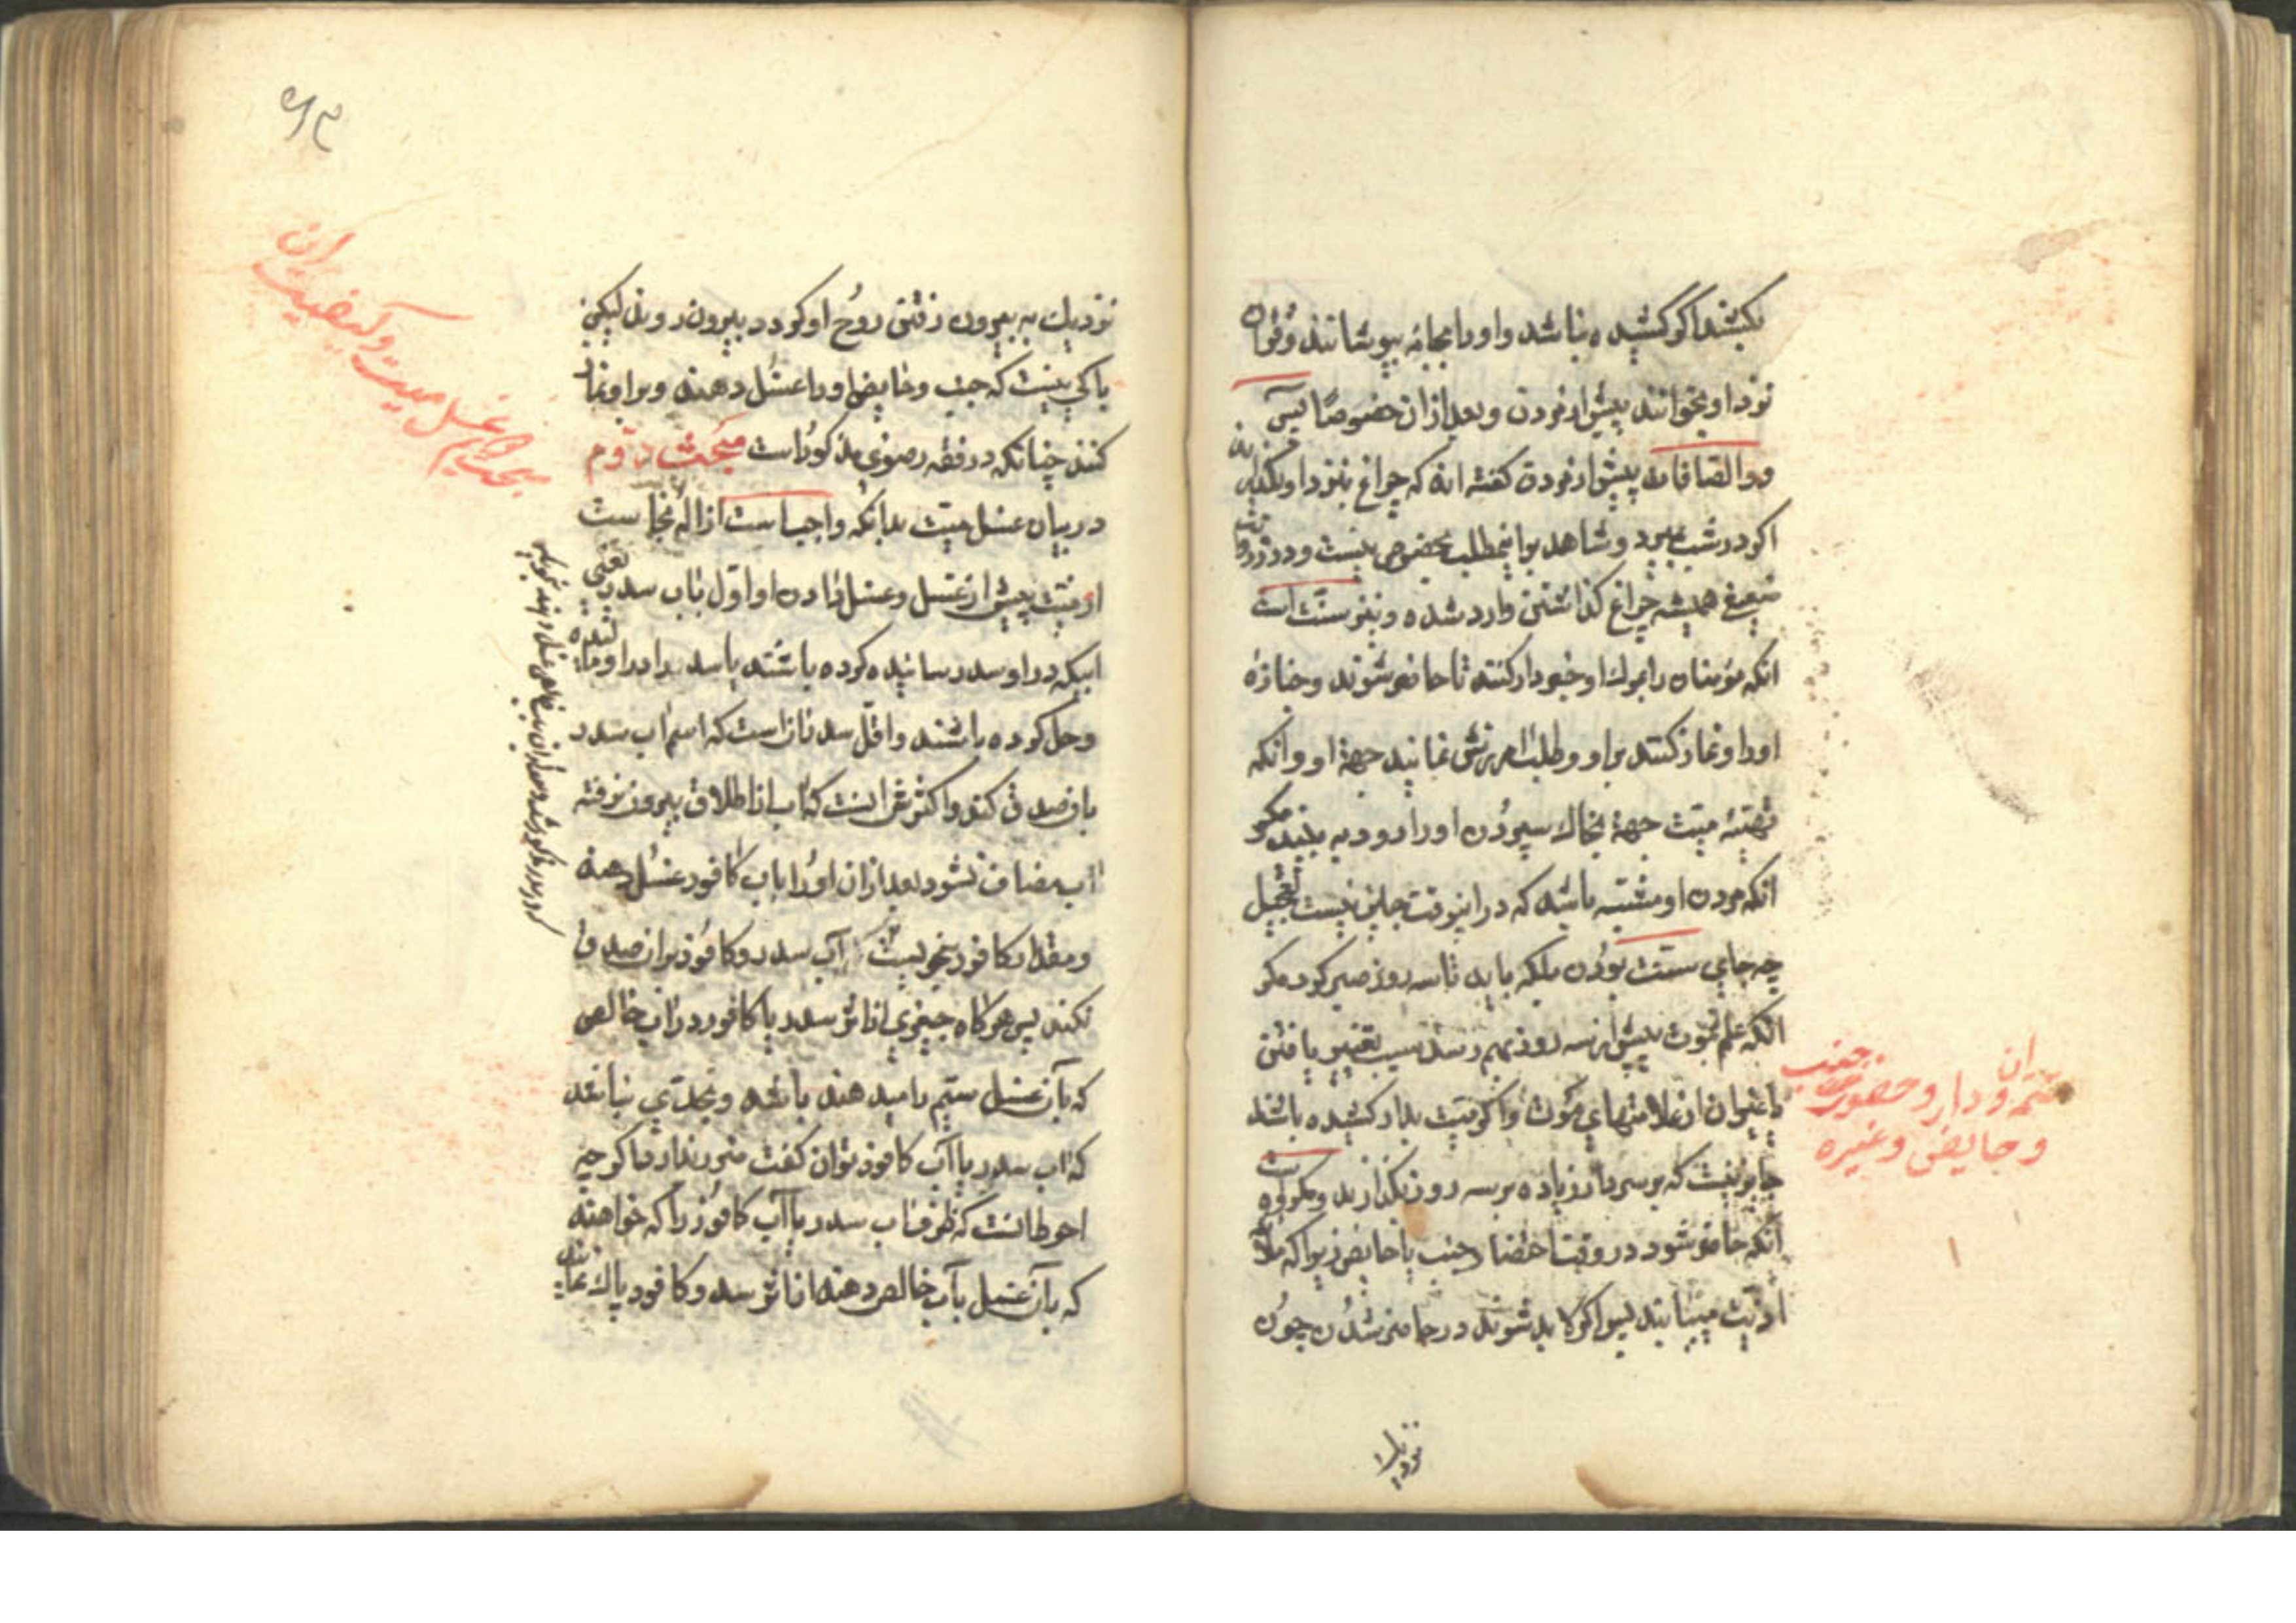 بکشند اگر کشیده نباشد و او را بجامه بپوشانند و قرآن
نزد او بخوانند پیش از مردن و بعد از آن خصوصا یس
و والصافات پیش از مردن گفته اند که چراغ بنزد او بگذارند
اگر در شب بمیرد و شاهد بر اینمطلب بخصوص نیست و در روایت
ضعیف همیشه چراغ گذاشتن وارد شده و نیز سنت است
آنکه مؤمنان را بمرك او خبردار کنند تا حاضر شوند و جنازهٔ
او را و نماز کنند بر او و طلب امرزش نمایند جهة او و آنکه
تهیئه میت جهة بخاك سپردن او را زود به بینند مگر
آنکه مردن او مشتبه باشد که در اینوقت جایز نیست تعجیل
چه جای سنت بودن بلکه باید تا سه روز صبر کرد مگر
آنکه علم بموت پیش از سه روز بهم رسد بسبب تغییر یافتن
یا غیر آن از علامتهای موت و اگر میت بدار کشیده باشد
جایز نیست که بر سر دار زیاده بر سه روز بگذارند و مکروه است
آنکه حاضر شود در وقت احتضار جنب یا حایض زیرا که ملائکه
اذیت میبابند پس اگر لابد شوند در حاضر شدن چون
و حضور جنب
و حایض و غیره
نزدیك
نزدیك به بیرون رفتن روح او گردد بیرون روند لیکن
باکی نیست که جنب و حایض او را غسل دهند و بر او نماز
کنند چنانکه در فقه رضوی مذکور است مبحث دوم
در بیان غسل میت بدانکه واجب است ازاله نجاست
از میت پیش از غسل و غسل دادن او اول باب سدر یعنی
آبیکه در او سدر سائیده کرده باشند یا سدر را در او مالیده
و حل کرده باشند و اقل سدر آن است که اسم آب سدر
بان صدق کند و اکثرش آنست که آب از اطلاق بیرون نرفته
آب مضاف نشود بعد از آن او را باب کافور غسل دهند
و مقدار کافور بنحویست آب سدر و کافور بر آن صدق
نکند پس هرگاه چیزی از اثر سدر یا کافور در آب خالص
که بآن غسل سیم را میدهند باشد و بحدی نباشد
که آب سدر یا آب کافور توان گفت ضرر ندارد اگر چه
احوط آنست که ظرف آب سدر یا آب کافور را که خواهند
که بآن غسل بآب خالص دهند از اثر سدر و کافور پاك نمایند
غسل میت و کیفیت آن